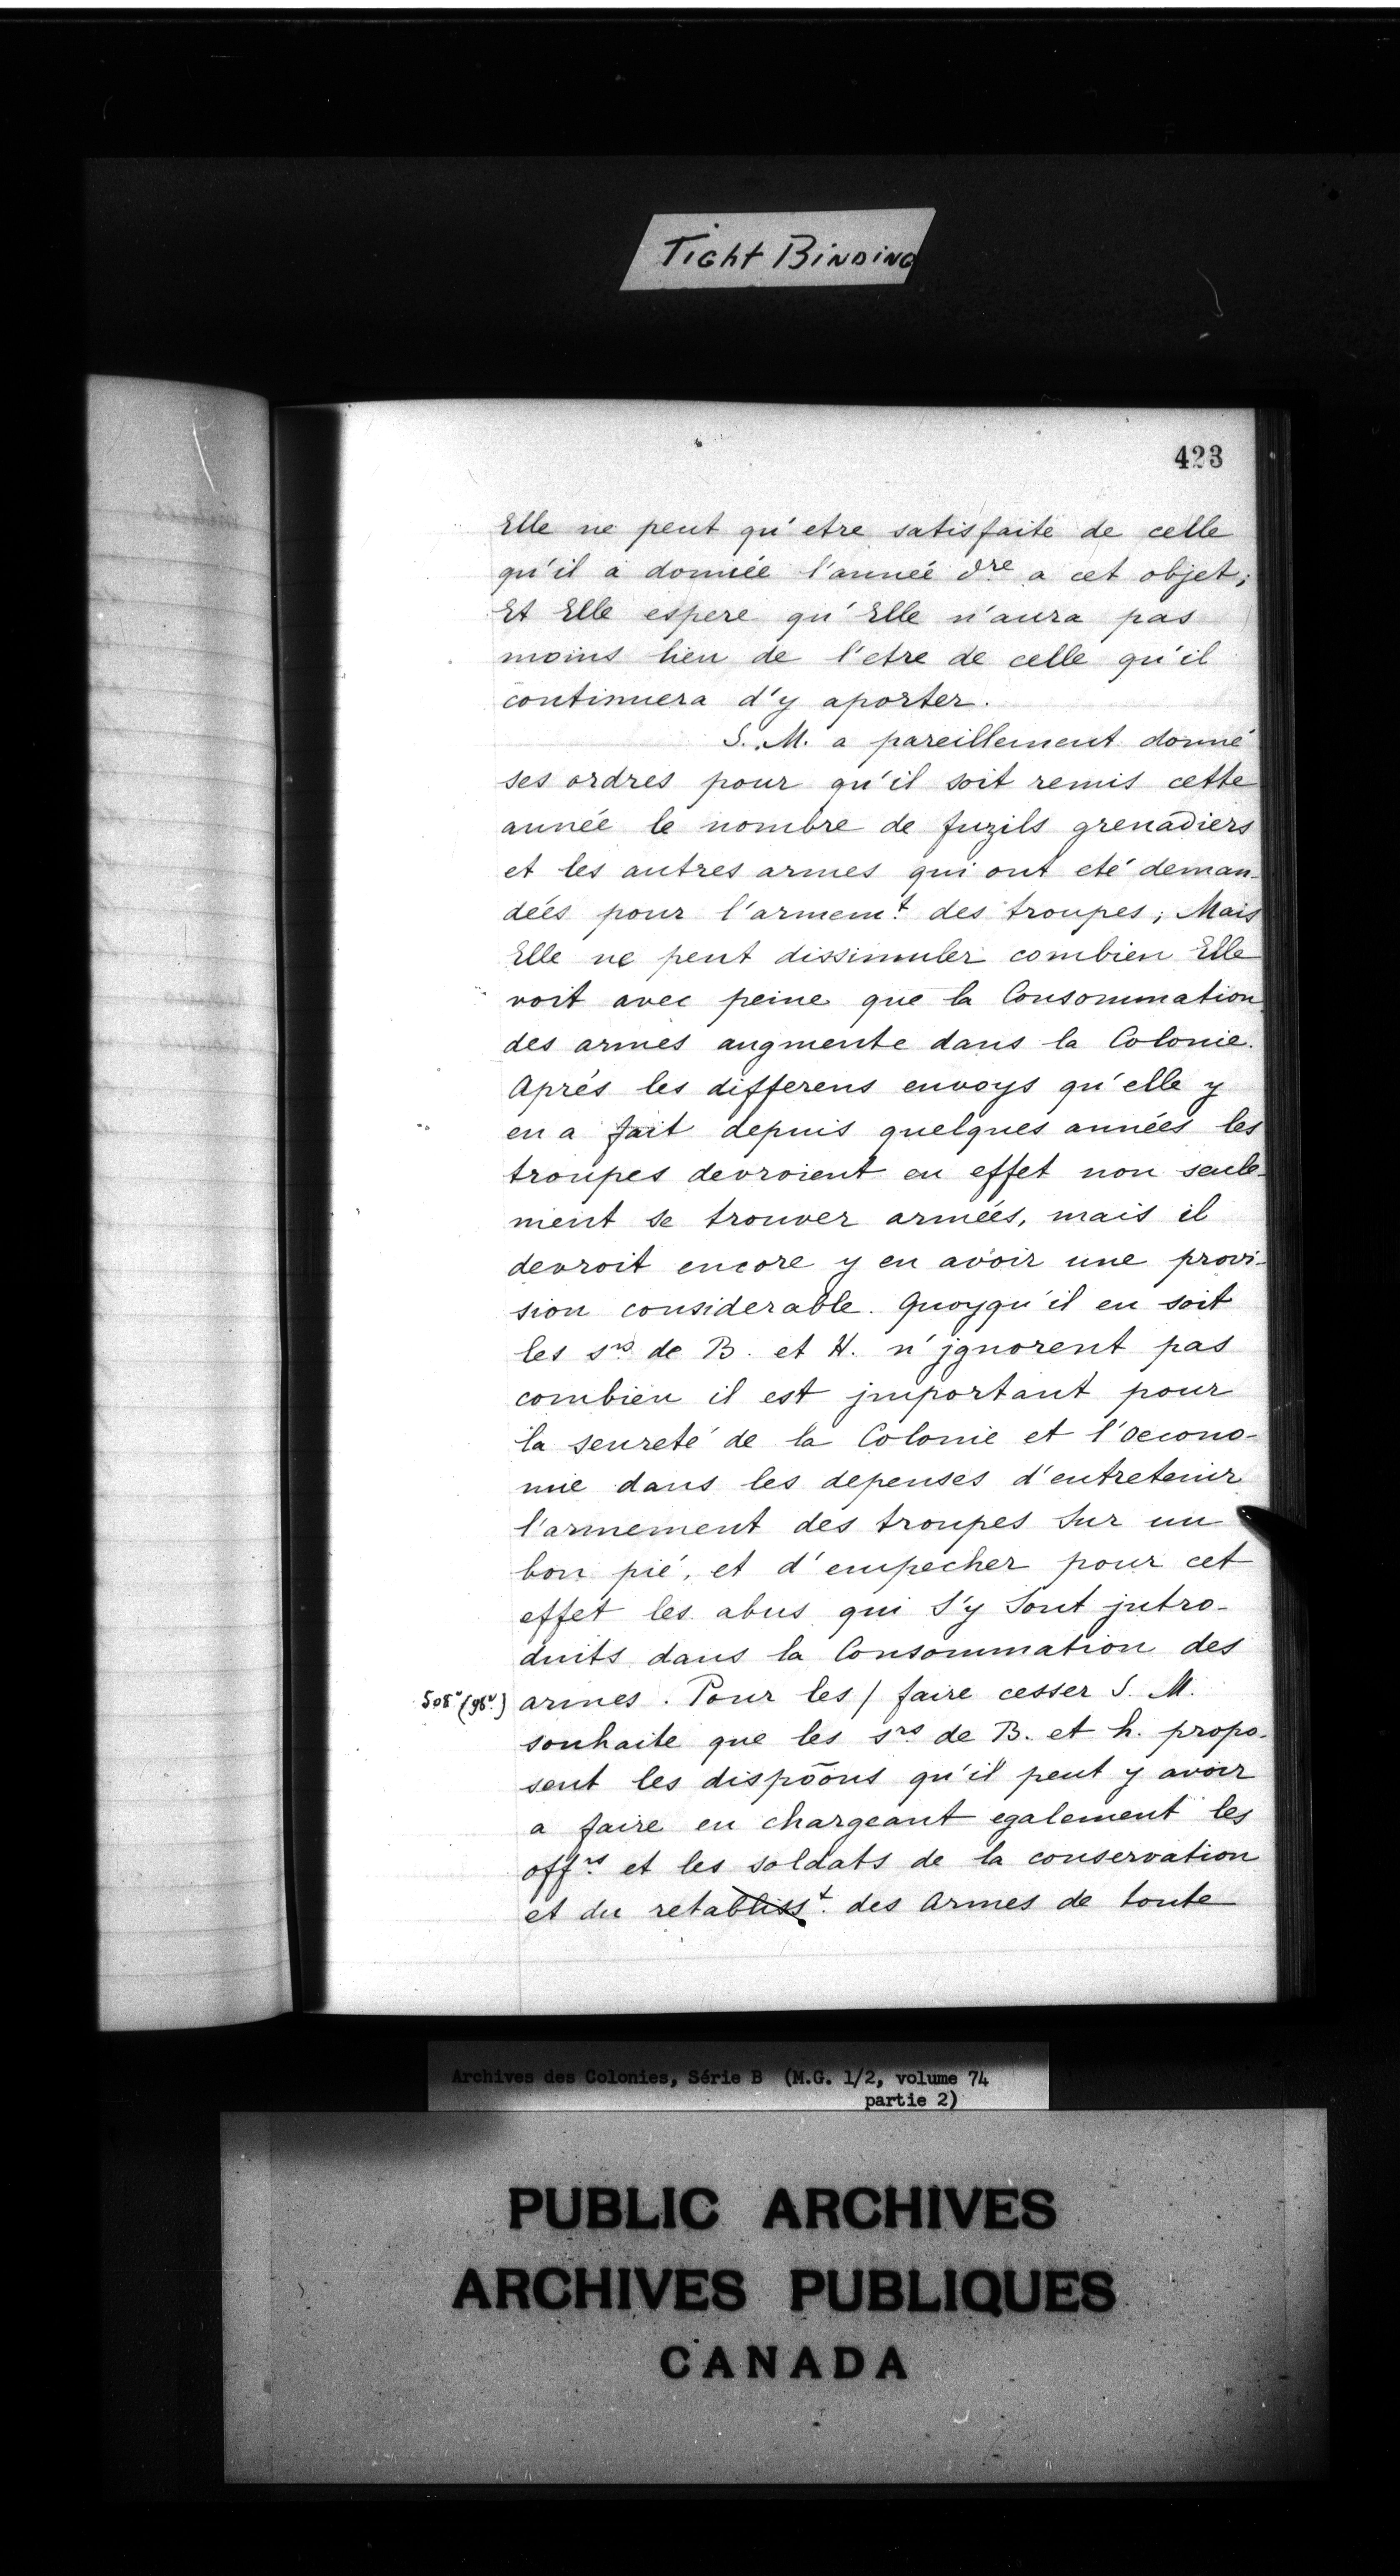 Tight Binding
423
Elle ne peut qu'etre satisfaite de celle
qu'il a donnée l'année dre a cet objet;
Et Elle espere qu'Elle n'aura pas
moins lieu de l'etre de celle qu'il
continuera d'y aporter.
S. M. a pareillement donné
ses ordres pour qu'il soit remis cette
année le nombre de fuzils grenadiers
et les autres armes qui ont eté deman-
dées pour l'armemt. des troupes; Mais
Elle ne peut dissimuler combien Elle
voit avec peine que la Consommation
des armes augmente dans la Colonie.
Aprés les differens envoys qu'elle y
en a fait depuis quelques années les
troupes devroient en effet non seule-
ment se trouver armées, mais il
devroit encore y en avoir une provi-
sion considerable. Quoyqu'il en soit
les srs de B. et H. n'jgnorent pas
combien il est jmportant pour
la seureté de la Colonie et l'oecono-
mie dans les depenses d'entretenir
l'armement des troupes Sur un
bon pié, et d'empecher pour cet
effet les abus qui S'y Sont jntro-
duits dans la Consommation des
508v (98v.) armes. Pour les / faire cesser S. M.
souhaite que les srs de B. et h. propo-
sent les dispõons qu'il peut y avoir
a faire en chargeant egalement les
offrs et les soldats de la conservation
et du retablisst. des Armes de toute
Archives des Colonies, Série B (M.G. 1/2, volume 74
partie 2)
PUBLIC ARCHIVES
ARCHIVES PUBLIQUES
CANADA